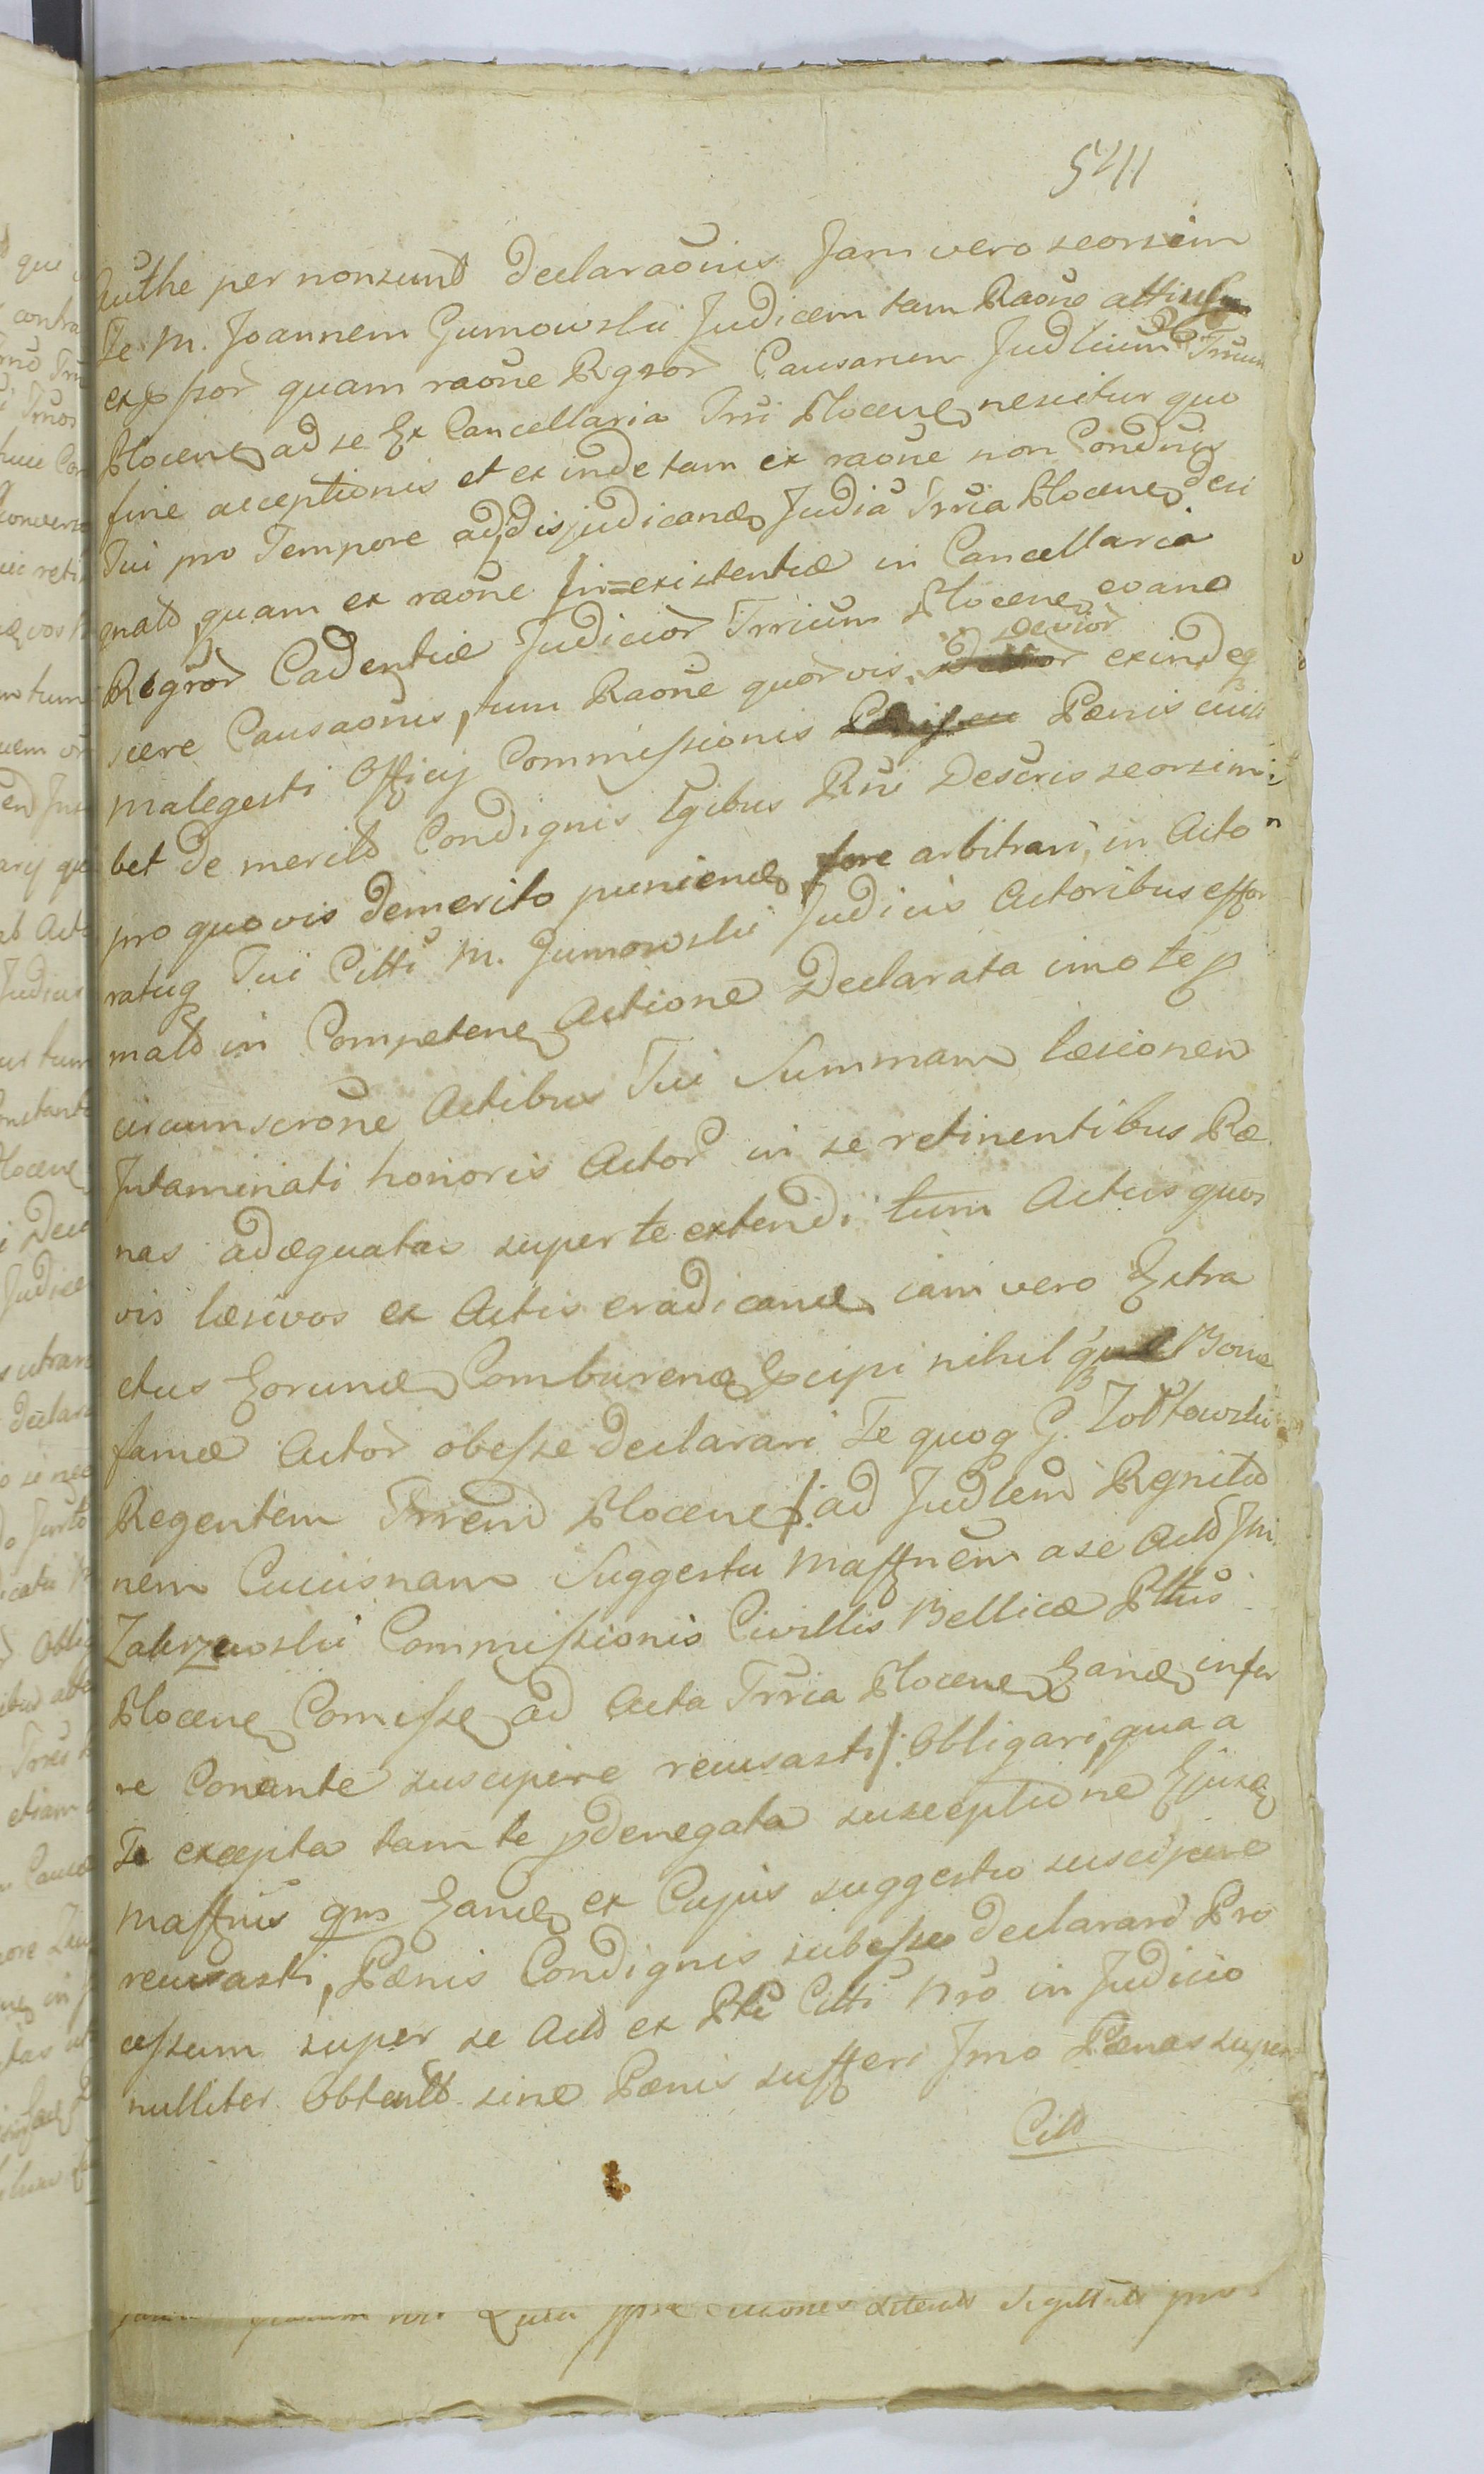 5411
Authe per nonsunt declaraõnis Jam vero seorsim
Te M. Joannem Gumowski Judicem tam Raõne
expssor quam raõne Rgror Causarum Judlium Trrium
Plocens ad se Ex Cancellaria Trri Plocens nescitur quo
fine acceptionis et ex inde tam ex raõne non Condnis
Tui pro Tempore ad disjudicand Judia Trria Plocens desi
gnato, quam ex raõne in=existentiæ in Cancellaria
Regror Cadentiæ Judicior Trrium Plocens evane
scere Causaõnis, tum Raõne quorvis Devior exindeq
malegesti Officij Commissionis Pænis cuili
bet de merito Condignis Lgibus Rni Descris seorsim
pro quovis demerito puniend fore arbitrari, in Acto
ratuq Tui Citti M. Gumowski Judicis Actoribus effor
mato in Competens Actione Declarata imo te p
circumscrõne Actibus Tui Summam læsionem
Intaminati honoris Actor in se retinentibus Pæ
nas adæquatas super te extendi tum Actus quos
vis læsivos ex Actis eradicand jam vero Extra
ctus Eorund Comburend Excipi nihil Bonæ
famæ Actor obesse declarari Te quoq G. Zołtowski
Regentem Trrem Plocens /: ad Judlem Rgnitio
nem Cuiusnam Suggestu Maffnem a se Acto Jm
Zakrzewski Commissionis Civillis Bellicæ Pltus
Plocens Comisse ad Acta Trria Plocens Eand infer
re Conante suscipere recusasti :/ Obligari, qua a
Te excepta tam te p denegata susceptione Ejusd
Maffnis qm Eand ex Cujus suggestu suscipere
recusasti, Pænis Condignis subesse declarari Pro
cessum super se Acto ex Pte Citti Nro in Judicio
nulliter Obtento sine Pænis sufferi Imo Pænas super
Citto